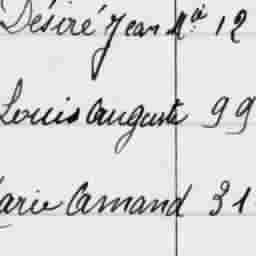 Désiré Jean Mie 12
Louis Auguste 99
Marie Amand 31